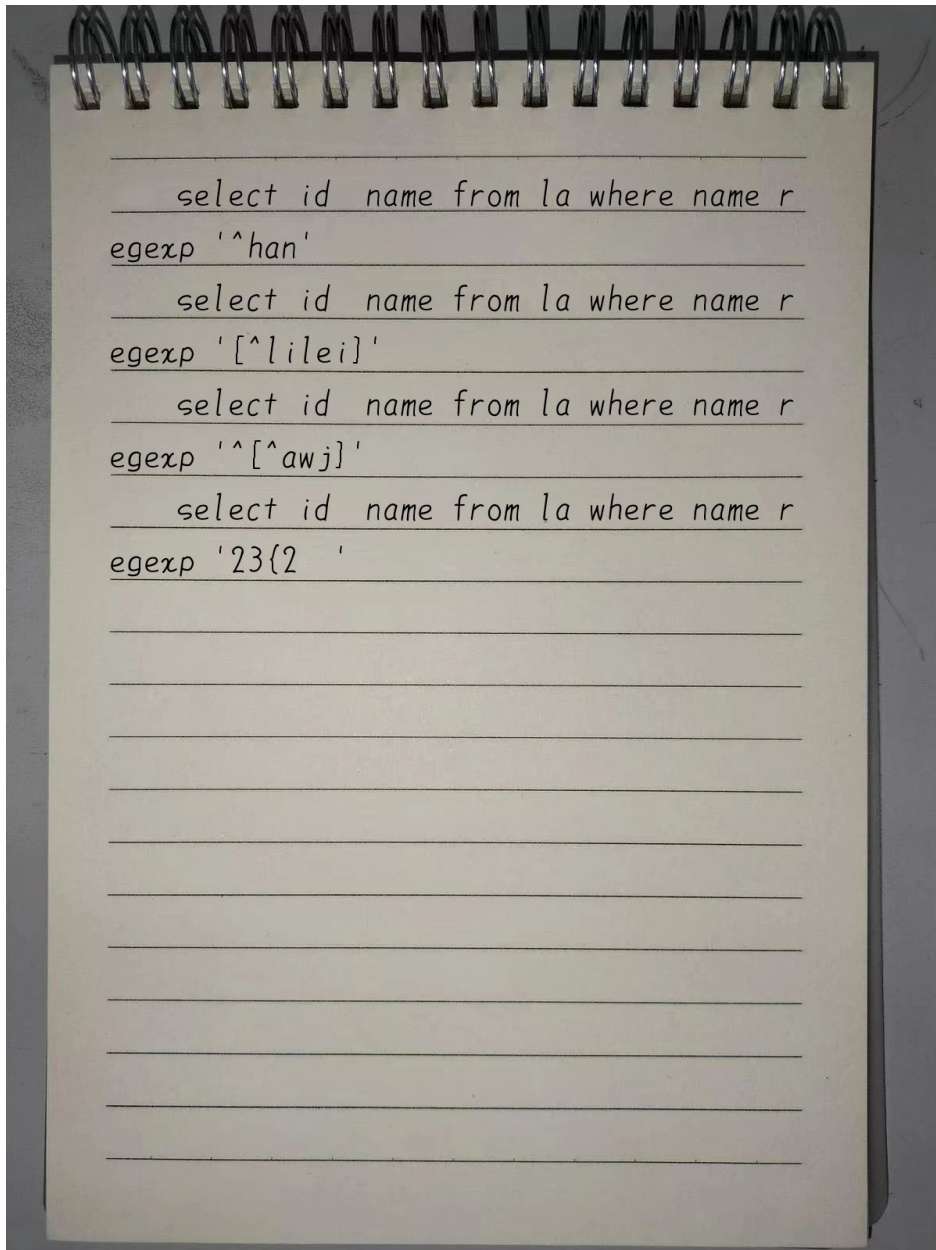 select id  name from la where name r
egexp '^han'
select id  name from la where name r
egexp '[^lilei]'
select id  name from la where name r
egexp '^[^awj]'
select id  name from la where name r
egexp '23{2  '